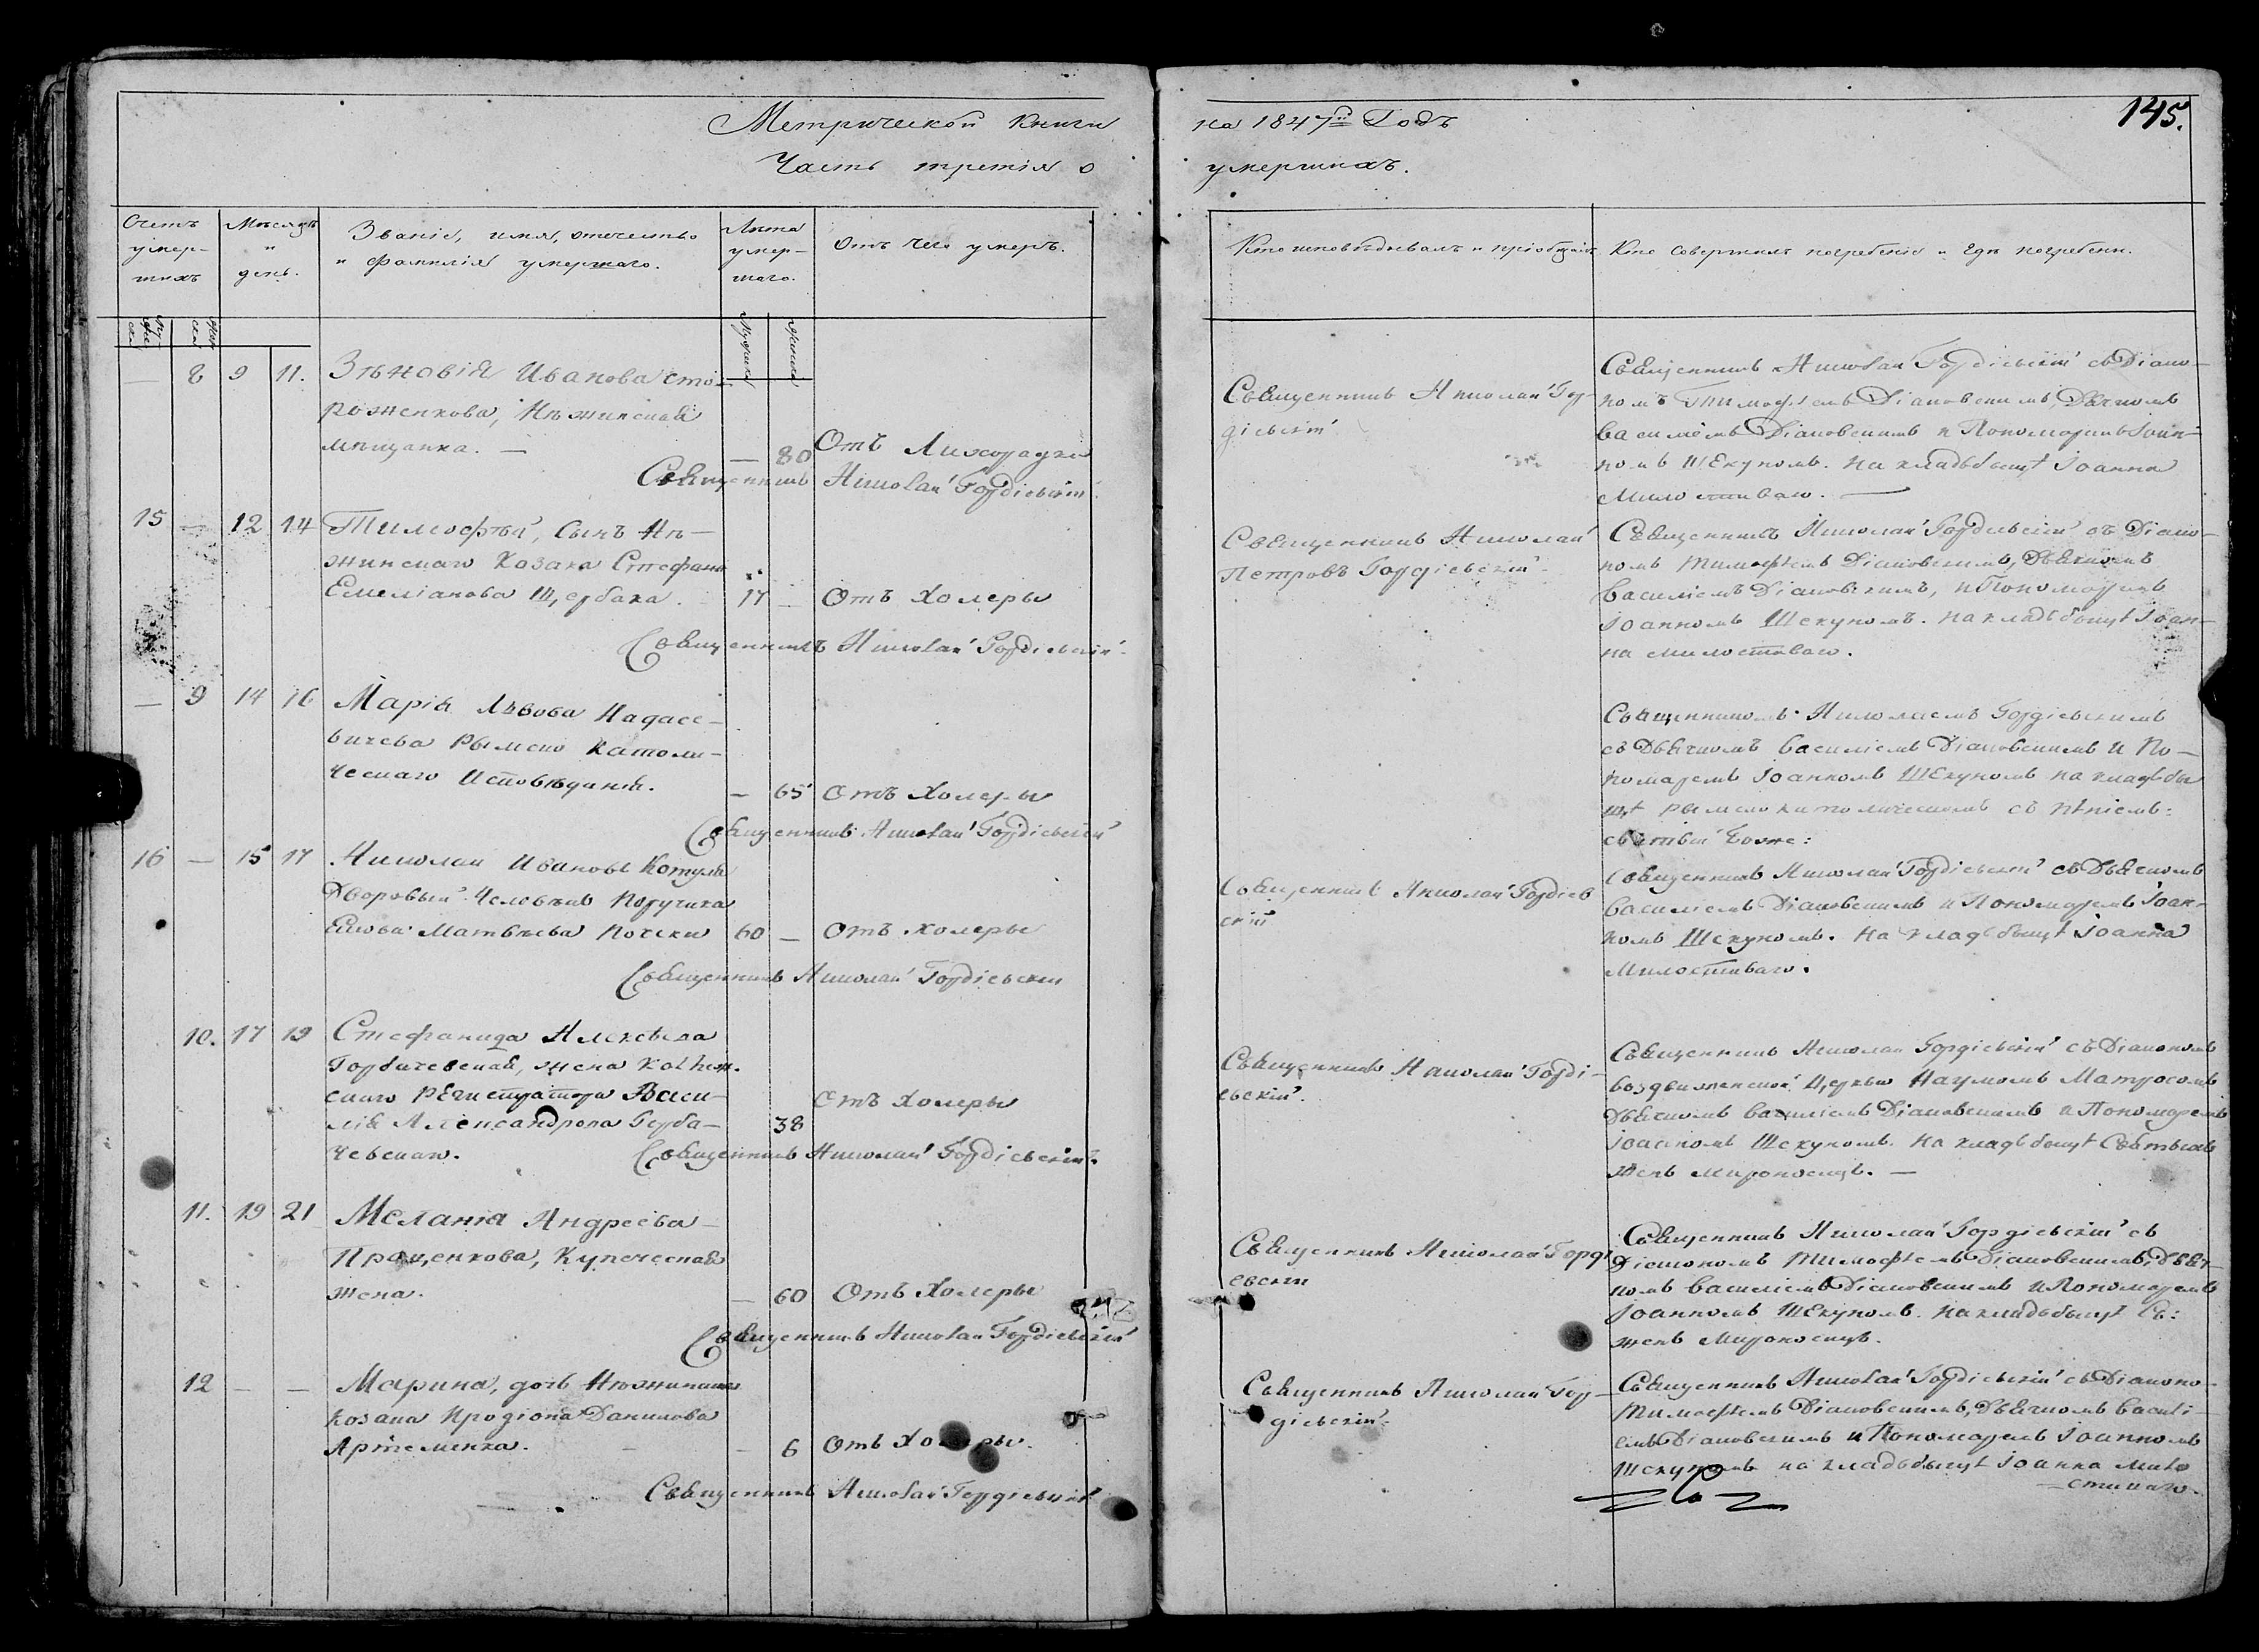 Метрической Книги
Часть третія о
на 1847й Годъ
умершихъ.
145.
Счетъ умер-шихъ
Мѣсяцъ и день.
Званіе, имя, отечество
и фамилія умершаго.
Лѣта умер-шаго.
Отъ чего умеръ.
Кто исповѣдывалъ и пріобщалъ
Кто совершилъ погребеніе и гдѣ погребены.
— 8 9 11.
Зѣновія Иванова Сто-
роженкова, Нѣжинская
мѣщанка. —
— 80 Отъ Лихорадки
Священникъ Николай Гордіевскій
Священникъ Николай Гор-
діевскій
Священникъ Николай Гордіевскій съ Діако-
номъ Тимофѣемъ Діаковскимъ, Дьячкомъ
Василіемъ Діаковскимъ и Пономаремъ Іоан-
номъ Шекуномъ. На кладбыщѣ Іоанна
Милостиваго. —
15 — 12 14
Тимофѣй, сынъ Нѣ-
жинскаго Козака Стефана
Емеліанова Щербака.
17 — Отъ Холеры
Священникъ Николай Гордіевскій
Священникъ Николай
Петровъ Гордіевскій
Священникъ Николай Гордіевскій съ Діако-
номъ Тимофѣемъ Діаковскимъ, Дьячкомъ
Василіемъ Діаковскимъ, и Пономаремъ
Іоанномъ Шекуномъ. На кладбыщѣ Іоан-
на Милостиваго.
— 9 14 16
Марія Львова
Рымско Католи-
ческаго Исповѣданія.
— 65 Отъ Холеры
Священникъ Николай Гордіевскій
Священникомъ Николаемъ Гордіевскимъ
съ Дьячкомъ Василіемъ Діаковскимъ и По-
номаремъ Іоанномъ Шекуномъ на кладбы
щѣ рымско католическомъ съ пѣніемъ:
святый Боже:
16 — 15 17
Николай Ивановъ
Дворовый Человѣкъ Поручика
Матвѣева Почеки
60 — Отъ холеры
Священникъ Николай Гордіевскій
Священникъ Николай Гордіев
скій
Священникъ Николай Гордіевскій съ Дьячкомъ
Василіемъ Діаковскимъ и Пономаремъ Іоан-
номъ Шекуномъ. На кладбыщѣ Іоанна
Милостиваго.
10. 17 19
Стефанида Алексѣева
Горбачевская, жена Коллеж.
скаго Регистратора Васи-
лія Александрова Горба-
чевскаго.
38 Отъ Холеры
Священникъ Николай Гордіевскій
Священникъ Николай Горді-
евскій.
Священникъ Николай Гордіевскій съ Діакономъ
воздвиженской Церкви Наумомъ Матросомъ
Дьячкомъ Василіемъ Діаковскимъ и Пономаремъ
Іоанномъ Шекуномъ. На кладбыщѣ Святыхъ
Женъ Мироносицъ. —
11. 19 21
Меланія Андреева
Проценкова, Купеческая
жена.
— 60 Отъ Холеры
Священникъ Николай Гордіевскій
Священникъ Николай Горді
евскій
Священникъ Николай Гордіевскій съ
Діакономъ Тимофѣемъ Діаковскимъ, Дьяч-
комъ Василіемъ Діаковскимъ и Пономаремъ
Іоанномъ Шекуномъ. На кладбыщѣ Св:
женъ Мироносицъ.
12 — —
Марина, дочь Нѣжинскаго
Козака Иродіона Данилова
Артеменка.
— 6 Отъ Холеры.
Священникъ Николай Гордіевскій
Священникъ Николай Гор-
діевскій
Священникъ Николай Гордіевскій съ Діаконо-
Тимофѣемъ Діаковскимъ, Дьячкомъ Василі-
емъ Діаковскимъ и Пономаремъ Іоанномъ
Шекуномъ на кладбыщѣ Іоанна Мило
стиваго.